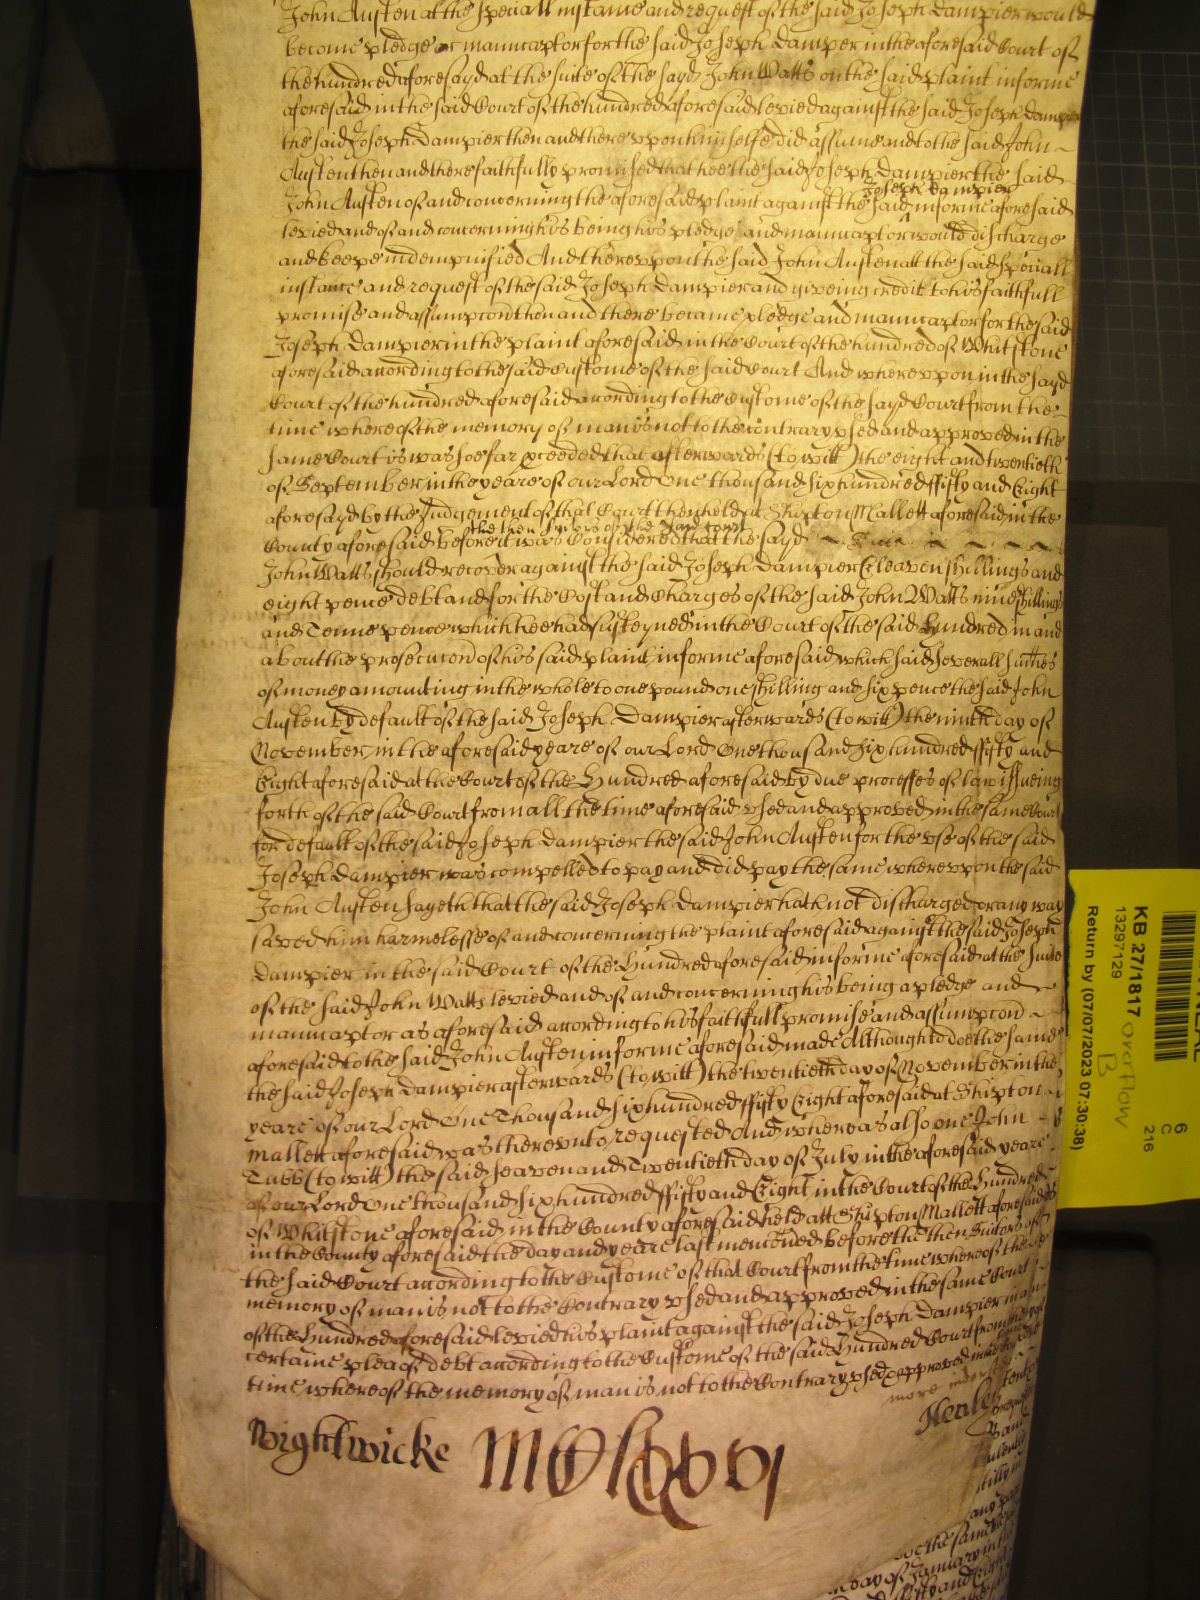 John Austen at the speciall instance and request of the said Joseph Dampier would
become pledge or manucaptor for the said Joseph Dampier in the aforesaid Court of
the hundred aforesayd at the suite of the sayd John Watts on the said plaint in forme
aforesaid in the said Court of the hundred aforesaid levied against the said Joseph Dampier
the said Joseph Dampier then and there vpon himselfe did assume and to the said John
Austen then and there faithfully promised that hee the said Joseph Dampier the said
Joseph Dampier
John Austen of and concerning the aforesaid plaint against the said in forme aforesaid
levied and of and concerning his being his pledge and manucaptor would discharge
and keepe indempnified And therevpon the said John Austen att the said speciall
instance and request of the said Joseph Dampier and giveing credit to his faithfull
promise and assumpcon then and there became pledge and manucaptor for the said
Joseph Dampier in the plaint aforesaid in the Court of the hundred of Whitstone
aforesaid according to the said Custome of the said Court And wherevpon in the sayd
Court of the hundred aforesaid according to the Custome of the sayd Court from the
time whereof the memory of man is not to the contrary vsed and approved in the
same Court it was soe far proceeded that afterwards (to witt) the eight and twentieth
of September in the yeare of our Lord One thousand six hundred ffifty and Eight
aforesayd by the Judgement of that Court then held at Shipton Mallett aforesaid in the
the then Sutors of the said Court
County aforesaid before it was Considered that the sayd
John Watts should recover against the said Joseph Dampier Eleaven shillings and
eight pence debt and for the Cost and Charges of the said John Watts nine shillings
and Tenne pence which hee had susteyned in the Court of the said Hundred in and
about the prosecucon of his said plaint in forme aforesaid which said severall summes
of money amounting in the whole to one pound one shilling and six pence the said John
Austen by default of the said Joseph Dampier afterwards (to witt) the ninth day of
November in the aforesaid yeare of our Lord One thousand six hundred ffifty and
Eight aforesaid at the Court of the Hundred aforesaid by due processes of law issueing
forth of the said Court from all the time aforesaid vsed and approved in the same Court
for default of the said Joseph Dampier the said John Austen for the vse of the said
Joseph Dampier was compelled to pay and did pay the same wherevpon the said
John Austen sayeth that the said Joseph Dampier hath not discharged or any way
saved him harmelesse of and concerning the plaint aforesaid against the said Joseph
Dampier in the said Court of the Hundred aforesaid in forme aforesaid at the suite
of the said John Watts levied and of and concerning his being a pledge and
manucaptor as aforesaid according to his faithfull promise and assumpcon
aforesaid to the said John Austen in forme aforesaid made Although to doe the same
the said Joseph Dampier afterwards (to witt) the twentieth day of November in the
yeare of our Lord One Thousand six hundred ffifty Eight aforesaid at Shipton
Mallett aforesaid was therevnto requested And whereas also one John
Tubb (to witt) the said seaven and Twentieth day of July in the aforesaid yeare
of our Lord One thousand six hundred ffifty and Eight in the Court of the Hundred
of Whitstone aforesaid in the County aforesaid held att Shipton Mallett aforesaid
in the County aforesaid the day and yeare last menconed before the then Suitors of
the said Court according to the Custome of that Court from the time whereof the
memory of man is not to the Contrary vsed and approved in the same Court
of the Hundred aforesaid levied his plaint against the said Joseph Dampier in a
certaine plea of debt according to the Custome of the said Hundred Court from the
time whereof the memory of man is not to the Contrary vsed & approved in the
Wightwicke
KB 27/1817
13297129
overflow
B
6
C
216
Return by (07/07/2023 07:30:38)